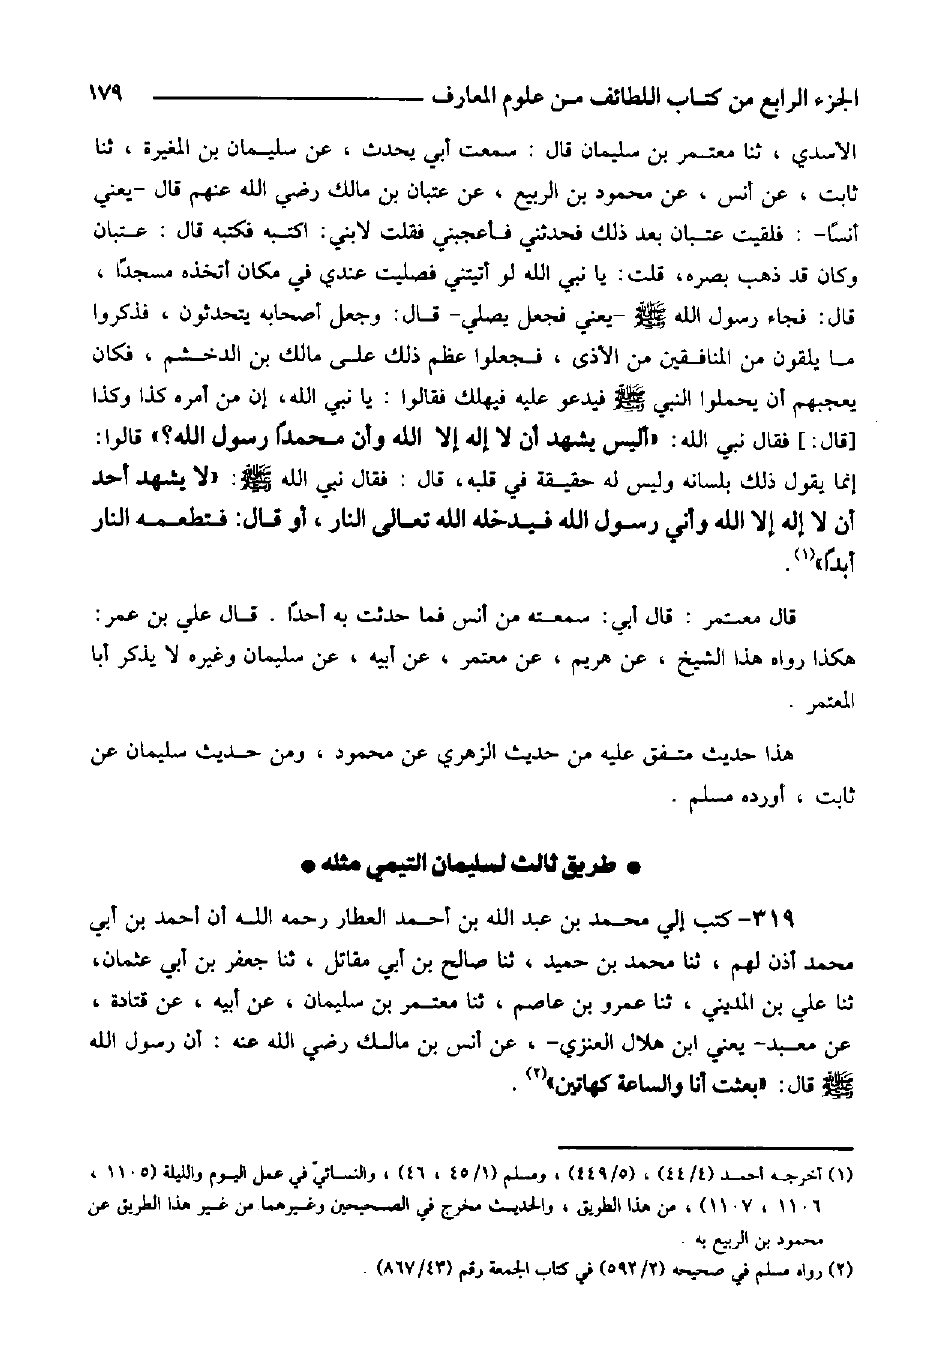 الجزء الرابع من كتاب اللطائف من علوم المعارف ١٧٩
الأسدي ، ثنا معتمر بن سليمان قال : سمعت أبي يحدث ، عن سليمان بن المغيرة ، ثنا
ثابت ، عن أنس ، عن محمود بن الربيع ، عن عتبان بن مالك رضي الله عنهم قال -يعني
أنسًا- : فلقيت عتبان بعد ذلك فحدثني فأعجبني فقلت لابني: اكتبه فكتبه قال : عتبان
وكان قد ذهب بصره، قلت: يا نبي الله لو أتيتني فصليت عندي في مكان أتخذه مسجدًا ،
قال: فجاء رسول الله ﷺ -يعني فجعل يصلي- قال: وجعل أصحابه يتحدثون ، فذكروا
ما يلقون من المنافقين من الأذى ، فجعلوا عظم ذلك على مالك بن الدخشم ، فكان
يعجبهم أن يحملوا النبي ﷺ فيدعو عليه فيهلك فقالوا : يا نبي الله، إن من أمره كذا وكذا
[قال:] فقال نبي الله: «أليس يشهد أن لا إله إلا الله وأن محمدًا رسول الله؟» قالوا:
إنما يقول ذلك بلسانه وليس له حقيقة في قلبه، قال : فقال نبي الله ﷺ: «لا يشهد أحد
أن لا إله إلا الله وأني رسول الله فيدخله الله تعالى النار ، أو قال: فتطعمه النار
أبدًا»(١).
قال معتمر : قال أبي: سمعته من أنس فما حدثت به أحدًا . قال علي بن عمر:
هكذا رواه هذا الشيخ ، عن هريم ، عن معتمر ، عن أبيه ، عن سليمان وغيره لا يذكر أبا
المعتمر .
هذا حديث متفق عليه من حديث الزهري عن محمود ، ومن حديث سليمان عن
ثابت ، أورده مسلم .
• طريق ثالث لسليمان التيمي مثله •
٣١٩- كتب إلي محمد بن عبد الله بن أحمد العطار رحمه الله أن أحمد بن أبي
محمد أذن لهم ، ثنا محمد بن حميد ، ثنا صالح بن أبي مقاتل ، ثنا جعفر بن أبي عثمان،
ثنا علي بن المديني ، ثنا عمرو بن عاصم ، ثنا معتمر بن سليمان ، عن أبيه ، عن قتادة ،
عن معبد- يعني ابن هلال العنزي- ، عن أنس بن مالك رضي الله عنه : أن رسول الله
ﷺ قال: «بعثت أنا والساعة كهاتين»(٢) .
(١) أخرجه أحمد (٤٤/٤) ، (٤٤٩/٥) ، ومسلم (٤٥/١ ، ٤٦) ، والنسائيّ في عمل اليوم والليلة (١١٠٥ ،
١١٠٦ ، ١١٠٧) ، من هذا الطريق ، والحديث مخرج في الصحيحين وغيرهما من غير هذا الطريق عن
محمود بن الربيع به .
(٢) رواه مسلم في صحيحه (٥٩٢/٢) في كتاب الجمعة رقم (٨٦٧/٤٣) .